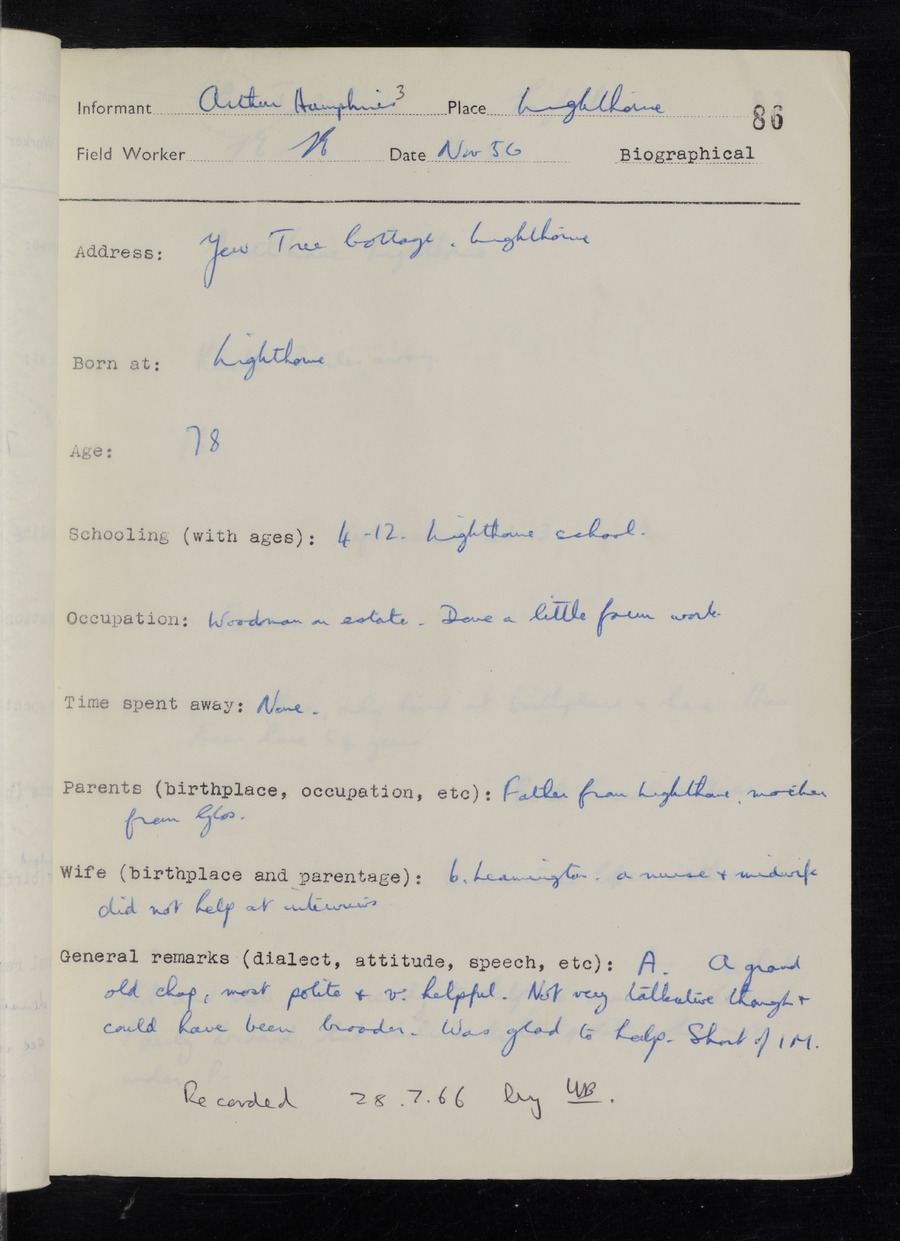 Informant Arthur Humphries 3 Place Lighthorne 86
Field Worker Date Nov 56 Biographical
Address: Yew Tree Cottage. Lighthorne
Born at: Lighthorne
Age: 78
Schooling (with ages): 4 - 12. Lighthorne school.
Occupation: Woodman on estate. Done a little farm work.
Time spent away: None.
Parents (birthplace, occupation, etc): Father from Lighthorne, mother
from Glos.
Wife (birthplace and parentage): b. Leamington. a nurse + midwife
did not help at interviews
General remarks (dialect, attitude, speech, etc): A. A grand
old chap, most polite + v. helpful. Not very talkative though +
could have been broader. Was glad to help. Short of 1 M.
Recorded 28.7.66 by